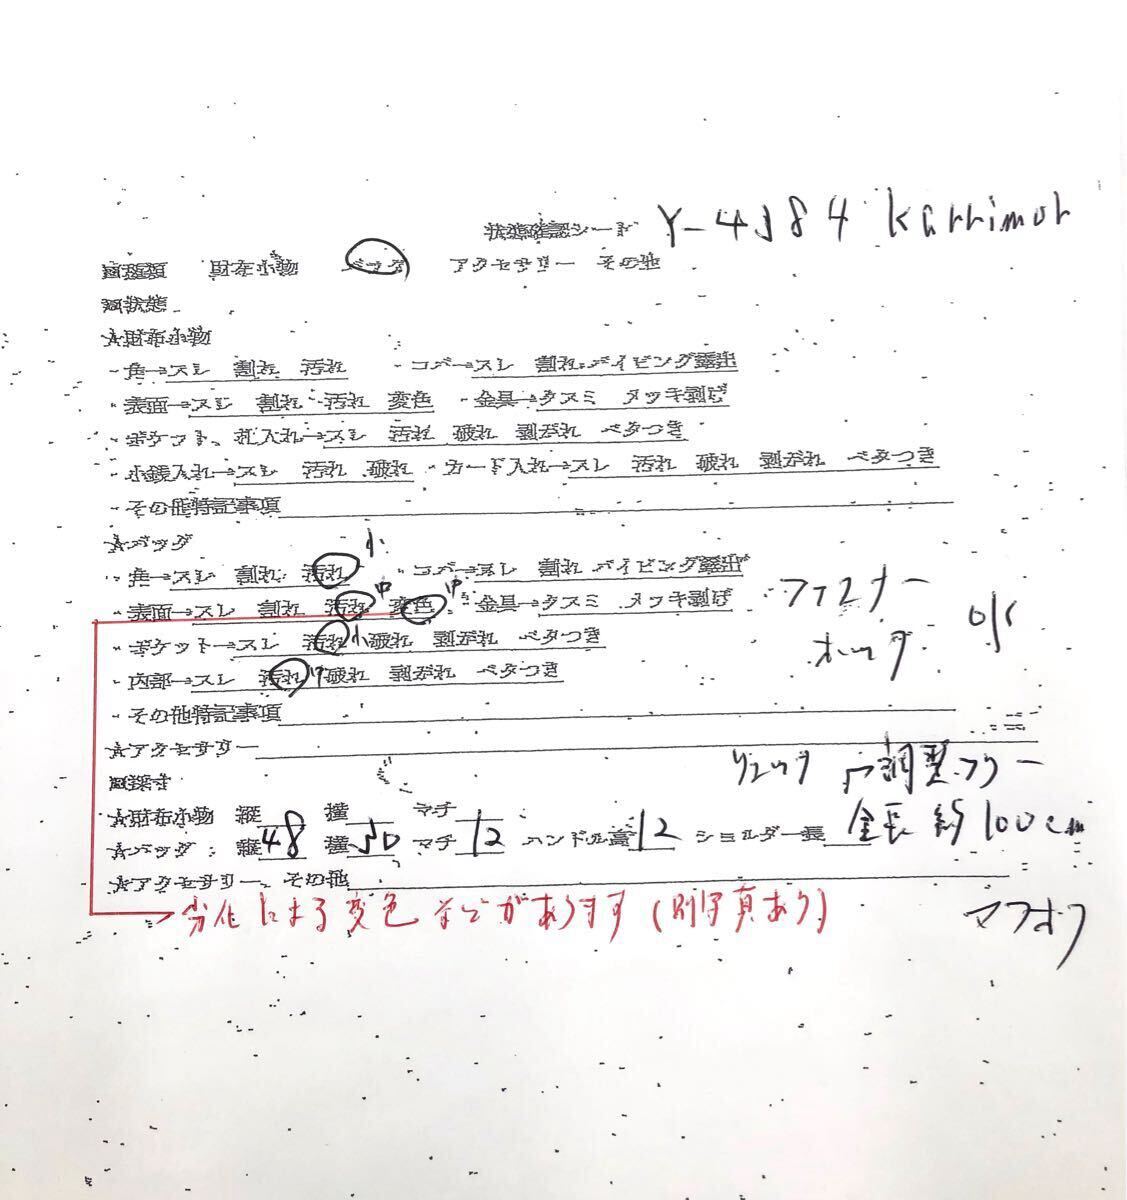 状態確認シート Y-4384 karrimor
■種類 財布小物 バッグ アクセサリー その他
■状態
★財布小物
・角→スレ 割れ 汚れ ・コバ→スレ 割れ パイピング露出
・表面→スレ 割れ 汚れ 変色 ・金具→クスミ メッキ剥げ
・ポケット、札入れ→スレ 汚れ 破れ 剥がれ ベタつき
・小銭入れ→スレ 汚れ 破れ ・カード入れ→スレ 汚れ 破れ 剥がれ ベタつき
・その他特記事項
★バッグ
・角→スレ 割れ 汚れ 小 ・コバ→スレ 割れ パイピング露出
・表面→スレ 割れ 汚れ 中 変色 中 ・金具→クスミ メッキ剥げ ファスナー
・ポケット→スレ 汚れ 小 破れ 剥がれ ベタつき ホック ok
・内部→スレ 汚れ 中 破れ 剥がれ ベタつき
・その他特記事項
★アクセサリー
リュック
■採寸
★財布小物 縦 横 マチ
★バッグ 縦48 横30 マチ12 ハンドル高12 ショルダー長 全長約100cm
★アクセサリー、その他
劣化による変色などがあります(別写真あり)
ヤフオク